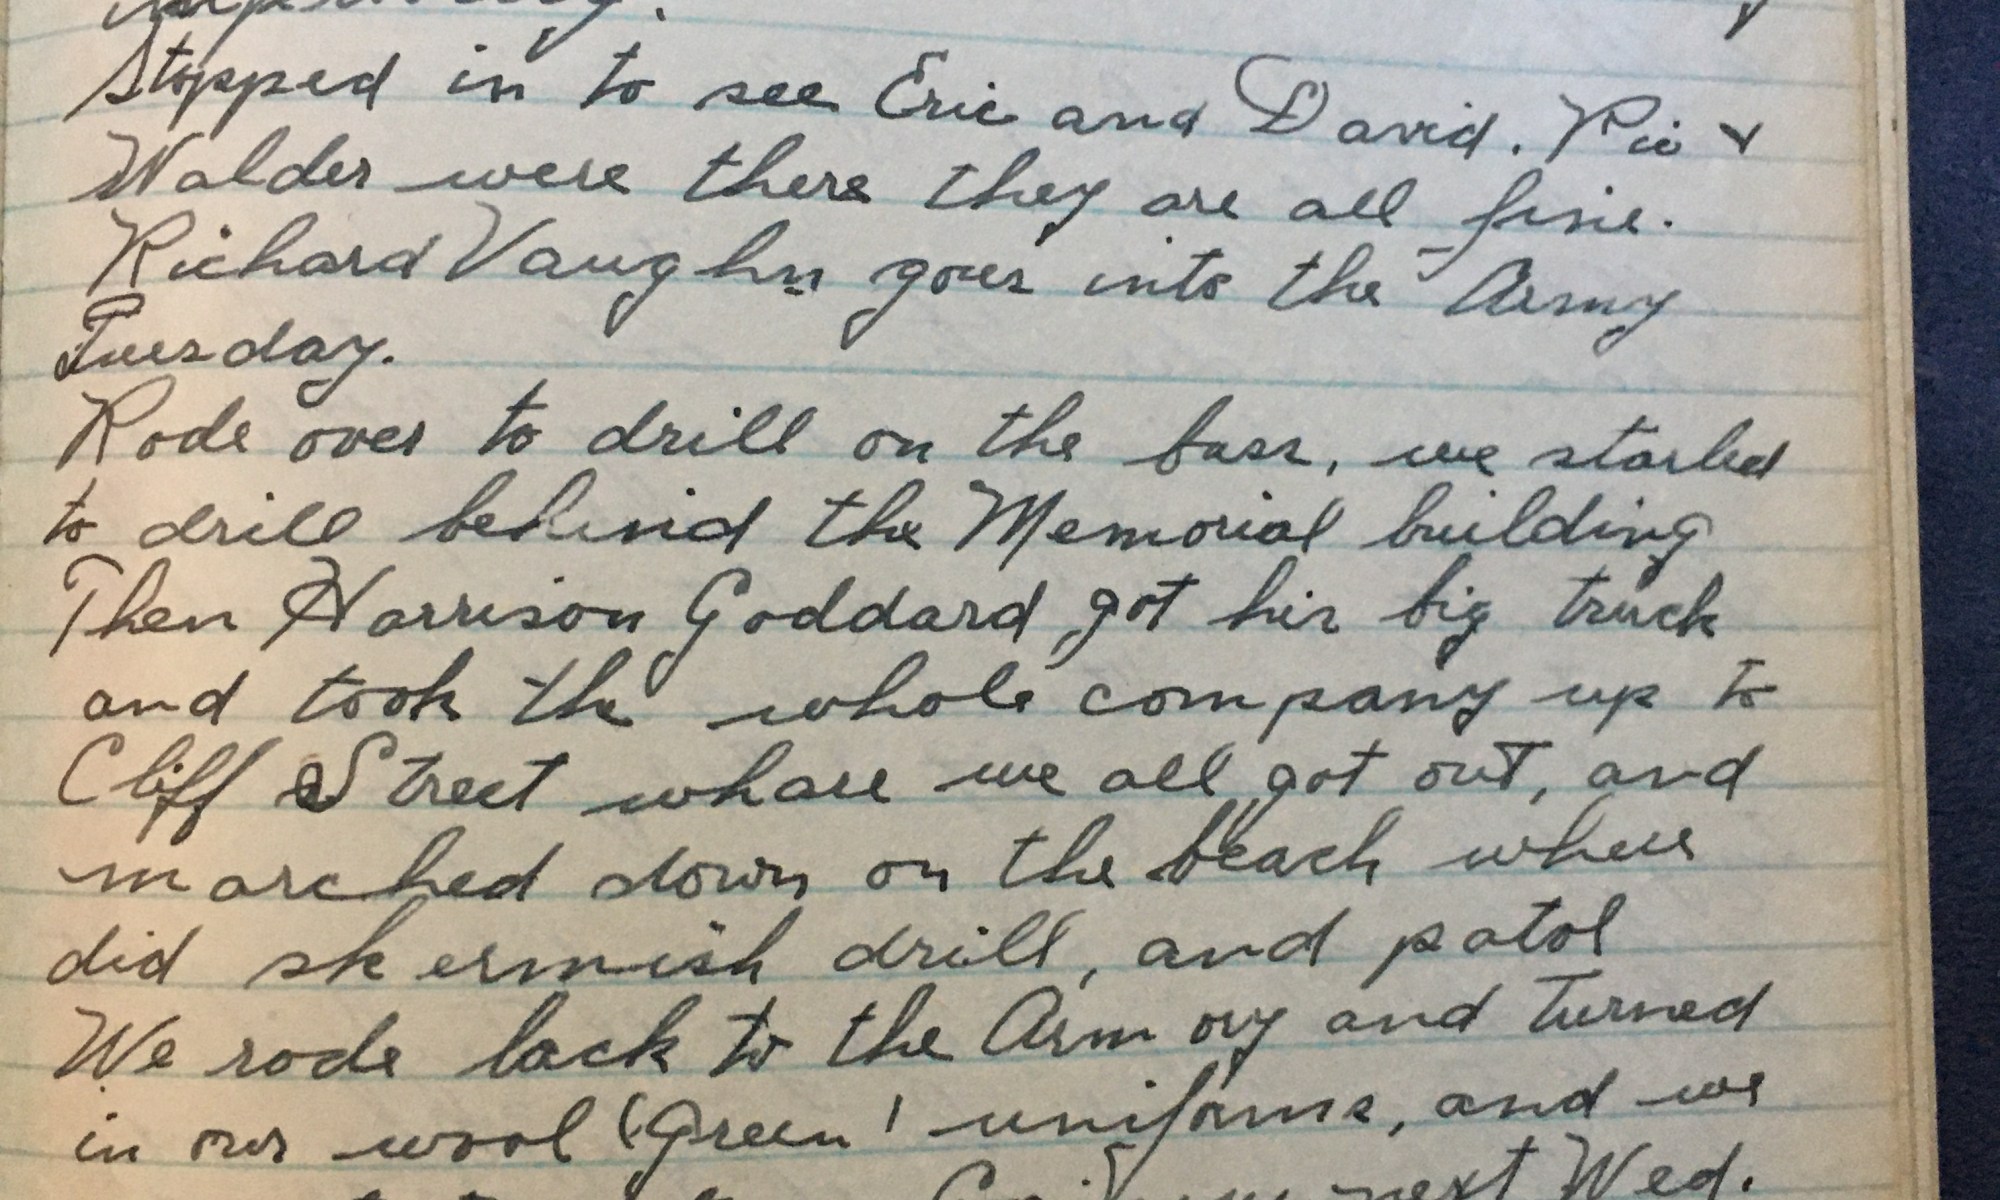 Stopped in to see Eric and David. Ric &
Walder were there they are all fine.
Richard Vaughn goes into the Army
Tuesday.
Rode over to drill on the buss, we started
to drill behind the Memorial building
Then Harrison Goddard got his big truck
and took the whole company up to
Cliff Street whare we all got out, and
marched down on the beach where
did skermish drill, and patol
We rode back to the Armory and turned
in our wool (Green) uniforms, and we
next Wed.